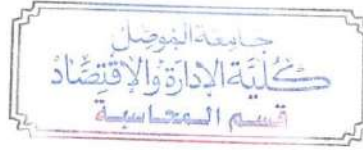 جامعة الموصل
كُليَّة الإدَارَة وَالاقْتِصَادْ
قسم المحاسبة